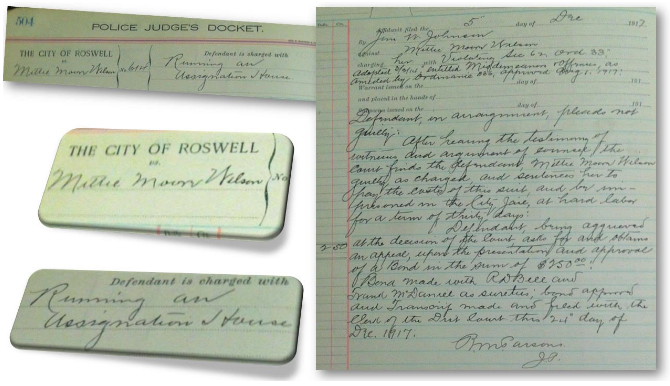 504
POLICE JUDGE'S DOCKET.
THE CITY OF ROSWELL
vs.
Millie Moon Wilson
No
Defendant is charged with
Running an
Assignation House
THE CITY OF ROSWELL
vs.
Millie Moon Wilson
No
Defendant is charged with
Running an
Assignation House
Affidavit filed the 5 day of Dec 1917
By Jim W Johnson
Millie Moon Wilson
charging her with Violating Sec 62 Ord 33
Adopted entitled Misdemeanor offenses, as
Amended by Ordinance approved Aug 1. 1917.
Warrant issued on the day of 191
and placed in the hands of
issued on the day of 191
Defendant, on arraignment, pleads not
guilty:
After hearing the testimony of
witnesses and argument of counsel the
Court finds the defendant Millie Moon Wilson
guilty as charged and sentences her to
pay the costs of this suit and be im-
prisoned in the City Jail, at hard labor
for a term of thirty days:
Defendant being aggrieved
at the decision of the Court asks for and obtains
an appeal upon the presentation and approval
of a Bond in the sum of $250.00.
Bond made with R D Bell and
McDaniel as sureties, bond approved
and Transcript made and filed with the
Clerk of the Dist Court this day of
Dec. 1917.
R M Parsons
J.P.